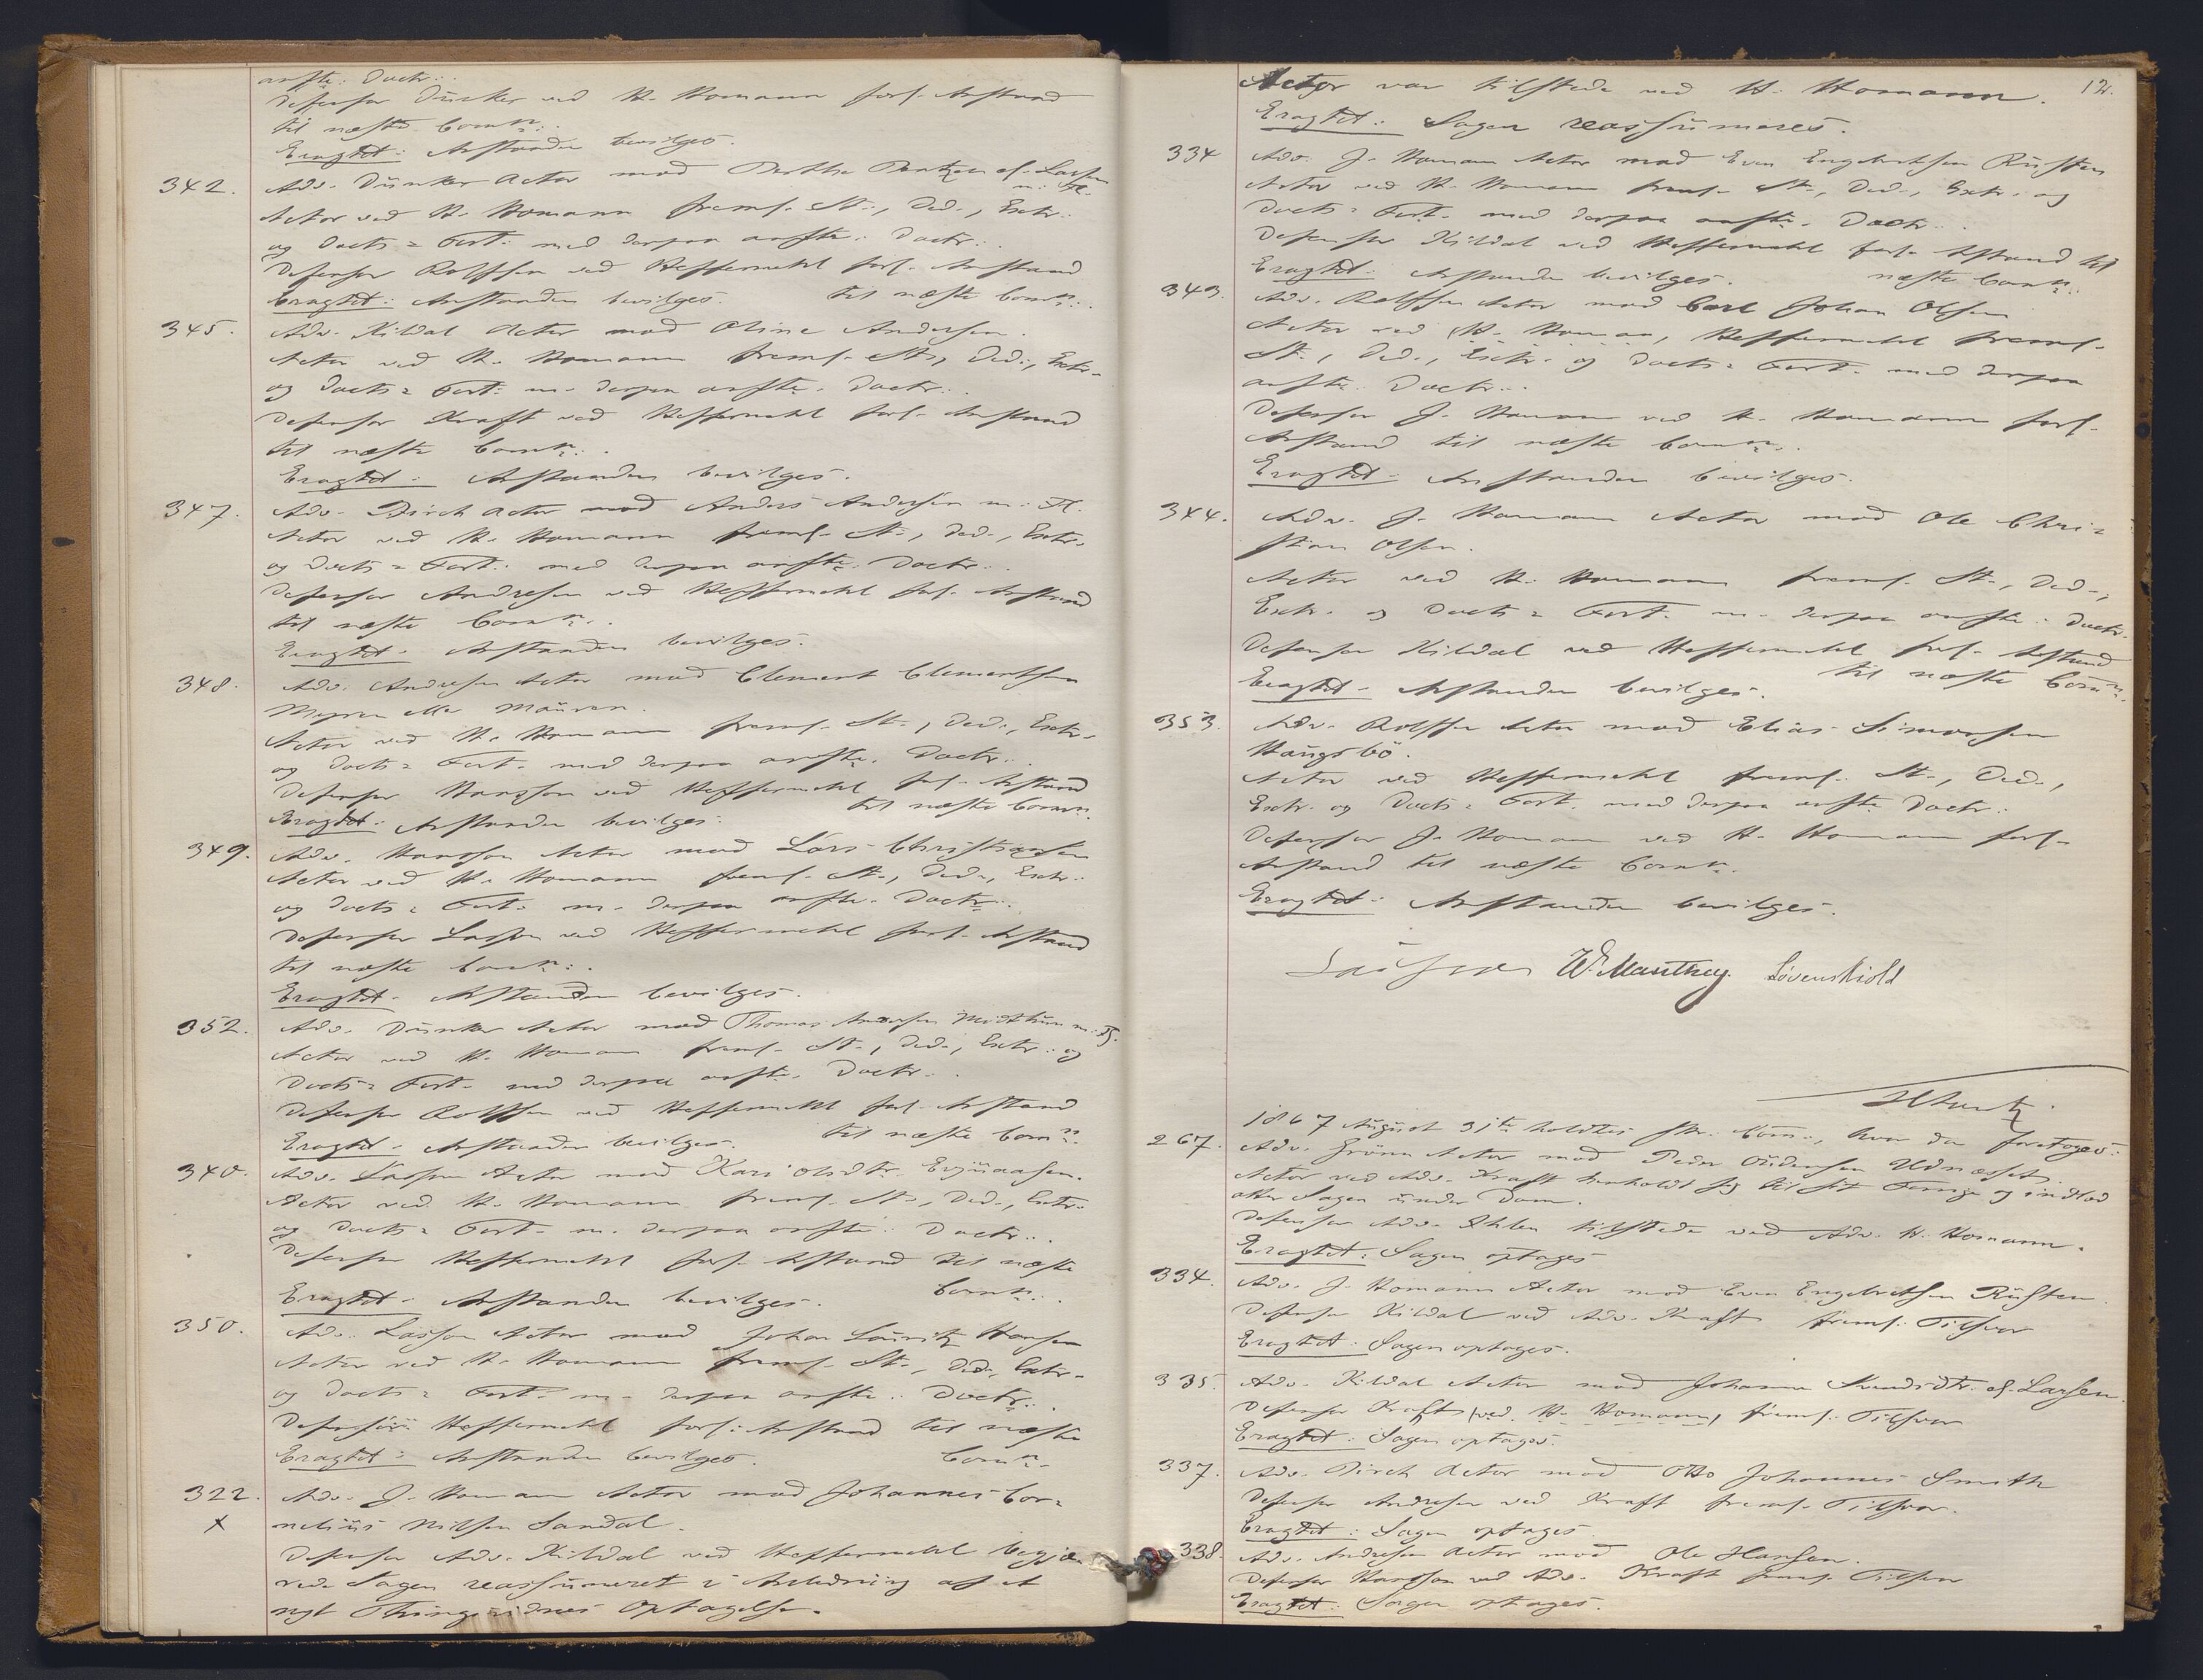 anftr. Doctr.
Defensor Dunker ved H. Homann forl. Anstand
til næste Comn.
Eragtet: Anstanden bevilges.
342. Adv. Dunker Actor mod Berthe Berntzen el. Larsen m. Fl.
Actor ved H. Homann freml. St., Ded., Extr.
og Docts = Fort. med derpaa anftr. Doctr.
Defensor Rolffsen ved Heffermehl forl. Anstand
Eragtet: Anstanden bevilges. til næste Comn.
345. Adv. Kildal Actor mod Oline Andersen.
Actor ved H. Homann freml. St., Ded., Extr.
og Docts = Fort. m. derpaa anftr. Doctr.
Defensor Kraft ved Heffermehl forl. Anstand
til næste Comn.
Eragtet: Anstanden bevilges.
347. Adv. Birch Actor mod Anders Andersen m. Fl.
Actor ved H. Homann freml. St., Ded., Extr.
og Docts = Fort. med derpaa anftr. Doctr.
Defensor Andresen ved Heffermehl forl. Anstand
til næste Comn.
Eragtet: Anstanden bevilges.
348. Adv. Andresen Actor mod Clement Clementsen
Myren eller Mauren.
Actor ved H. Homann freml. St., Ded., Extr.
og Docts = Fort. med derpaa anftr. Doctr.
Defensor Hansson ved Heffermehl forl. Anstand
Eragtet: Anstanden bevilges. til næste Comn.
349. Adv. Hansson Actor mod Lars Christiansen
Actor ved H. Homann freml. St., Ded., Extr.
og Docts = Fort. m. derpaa anftr. Doctr.
Defensor Lasson ved Heffermehl forl. Anstand
til næste Comn.
Eragtet. Anstanden bevilges.
352. Adv. Dunker Actor mod Thomas Andersen Midthun m. Fl.
Actor ved H. Homann freml. St., Ded., Extr. og
Docts = Fort. med derpaa anftr. Doctr.
Defensor Rolffsen ved Heffermehl forl. Anstand
Eragtet. Anstanden bevilges. til næste Comn.
340. Adv. Lasson Actor mod Kari Olsdtr.
Actor ved H. Homann freml. St., Ded., Extr.
og Docts = Fort. m. derpaa anftr. Doctr.
Defensor Heffermehl forl. Anstand til næste
Eragtet. Anstanden bevilges. Comn.
350. Adv. Lasson Actor mod Johan Lauritz Hansen
Actor ved H. Homann freml. St., Ded., Extr.
og Docts = Fort. m. derpaa anftr. Doctr.
Defensor Heffermehl forl. Anstand til næste
Eragtet: Anstanden bevilges. Comn.
322. Adv. J. Homann Actor mod Johannes Cor=
x nelius Nilsen Sandal.
Defensor Adv. Kildal ved Heffermehl begjæ
rede Sagen reassumeret i Anledning af et
nyt Thingsvidnes Optagelse.
12.
Actor var tilstede ved H. Homann.
Eragtet: Sagen reassumeres.
334 Adv. J. Homann Actor mod Even Engebretsen Rusten
Actor ved H. Homann freml. St., Ded., Extr. og
Docts = Fort. med derpaa anftr. Doctr.
Defensor Kildal ved Heffermehl forl. Anstand til
Eragtet. Anstanden bevilges. næste Comn.
343. Adv. Rolffsen Actor mod Carl Johan Olsen
Actor ved (H. Homan, Heffermehl freml.
St., Ded., Extr. og Docts = Fort. med derpaa
anftr. Doctr.
Defensor J. Homann ved H. Homann forl.
Anstand til næste Comn.
Eragtet: Anstanden bevilges.
344. Adv. J. Homann Actor mod Ole Chri=
stian Olsen.
Actor ved H. Homann freml. St., Ded.,
Extr. og Docts = Fort. m. derpaa anftr. Doctr.
Defensor Kildal ved Heffermehl forl. Anstand
Eragtet. Anstanden bevilges. til næste Comn.
353. Adv. Rolffsen Actor mod Elias Simonsen
Haugsbö.
Actor ved Heffermehl freml. St., Ded.,
Extr. og Docts = Fort. med derpaa anftr. Doctr.
Defensor J. Homann ved H. Homann forl.
Anstand til næste Comn.
Eragtet: Anstanden bevilges.
W. Manthey. Løvenskiold
1867 August 31te holdtes Comn., hvor da foretoges:
267. Adv. Grönn Actor mod Peder Oudensen Udnæsset.
Actor ved Adv. Kraft henholdt sig til sit Forrige og indlod
atter Sagen under Dom.
Defensor Adv. Ihlen tilstede ved Adv. H. Homann.
Eragtet: Sagen optages
334. Adv. J. Homann Actor mod Even Engebretsen Rusten
Defensor Kildal ved Adv. Kraft freml. Tilsvar
Eragtet: Sagen optages.
335. Adv. Kildal Actor mod Johanne el. Larsen.
Defensor Kraft (ved H. Homann) freml. Tilsvar
Eragtet: Sagen optages.
337. Adv. Birch Actor mod Otto Johannes Smith
Defensor Andresen ved Kraft freml. Tilsvar.
Eragtet: Sagen optages.
338. Adv. Andresen Actor mod Ole Hansen.
Defensor Hansson ved Adv. Kraft freml. Tilsvar
Eragtet: Sagen optages.